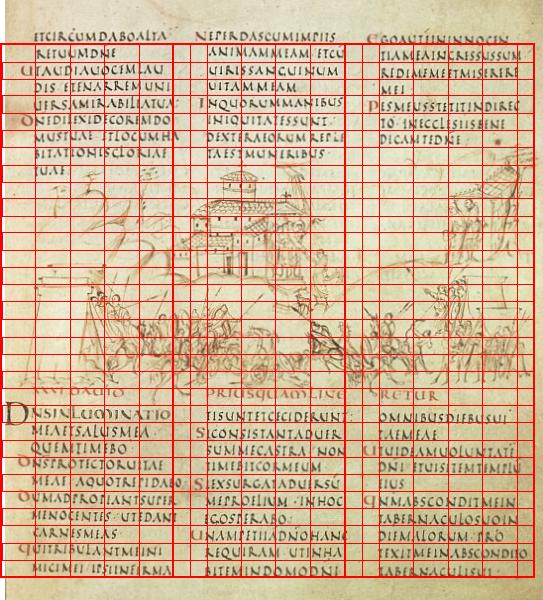 ETCIRCUMDABOALTA
RETUUMDNE
UTAUDIAUOCEMLAU
DIS ETENARREMUNI
UERSAMIRABILIATUA:
DNEDILEXIDECOREMDO
MUSTUAE ETLOCUMHA
BITATIONISGLORIAE
TUAE
NEPERDASCUMIMPIIS
ANIMAMMEAM ETCU
UIRISSANGUINUM
UITAMMEAM
INQUORUMMANIBUS
INIQUITATESSUNT
DEXTERAEORUM REPLE
TAESTMUNERIBUS
EGOAUTEININNOCEN
TIAMEAINGRESSUSSUM
REDIMEMEETMISERERE
MEI
PESMEUSSTETITINDIREC
TO INECCLESIISBENE
DICAMTEDNE
PRIUSQUAMLINE RETUR
DNSINLUMINATIO
MEAETSALUSMEA
QUEMTIMEBO
DNSPROTECTORUITAE
MEAE AQUOTREPIDABO
DUMADPROPIANTSUPER
MENOCENTES UTEDANT
CARNESMEAS
QUITRIBULANTMEINI
MICIMEI IPSIINFIRMA
TISUNTETCECIDERUNT:
SICONSISTANTADUER
SUMMECASTRA NON
TIMEBITCORMEUM
SIEXSURGATADUERSU
MEPROELIUM INHOC
EGOSPERABO
UNAMPETIIADNOHANC
REQUIRAM UTINHA
BITEMINDOMODNI
OMNIBUSDIEBUSUI
TAEMEAE
UTUIDEAMUOLUNTATE
DNI ETUISITEMTEMPLU
EIUS
QNMABSCONDITMEIN
TABERNACULOSUOIN
DIEMALORUM PRO
TEXITMEINABSCONDITO
TABERNACULISUI